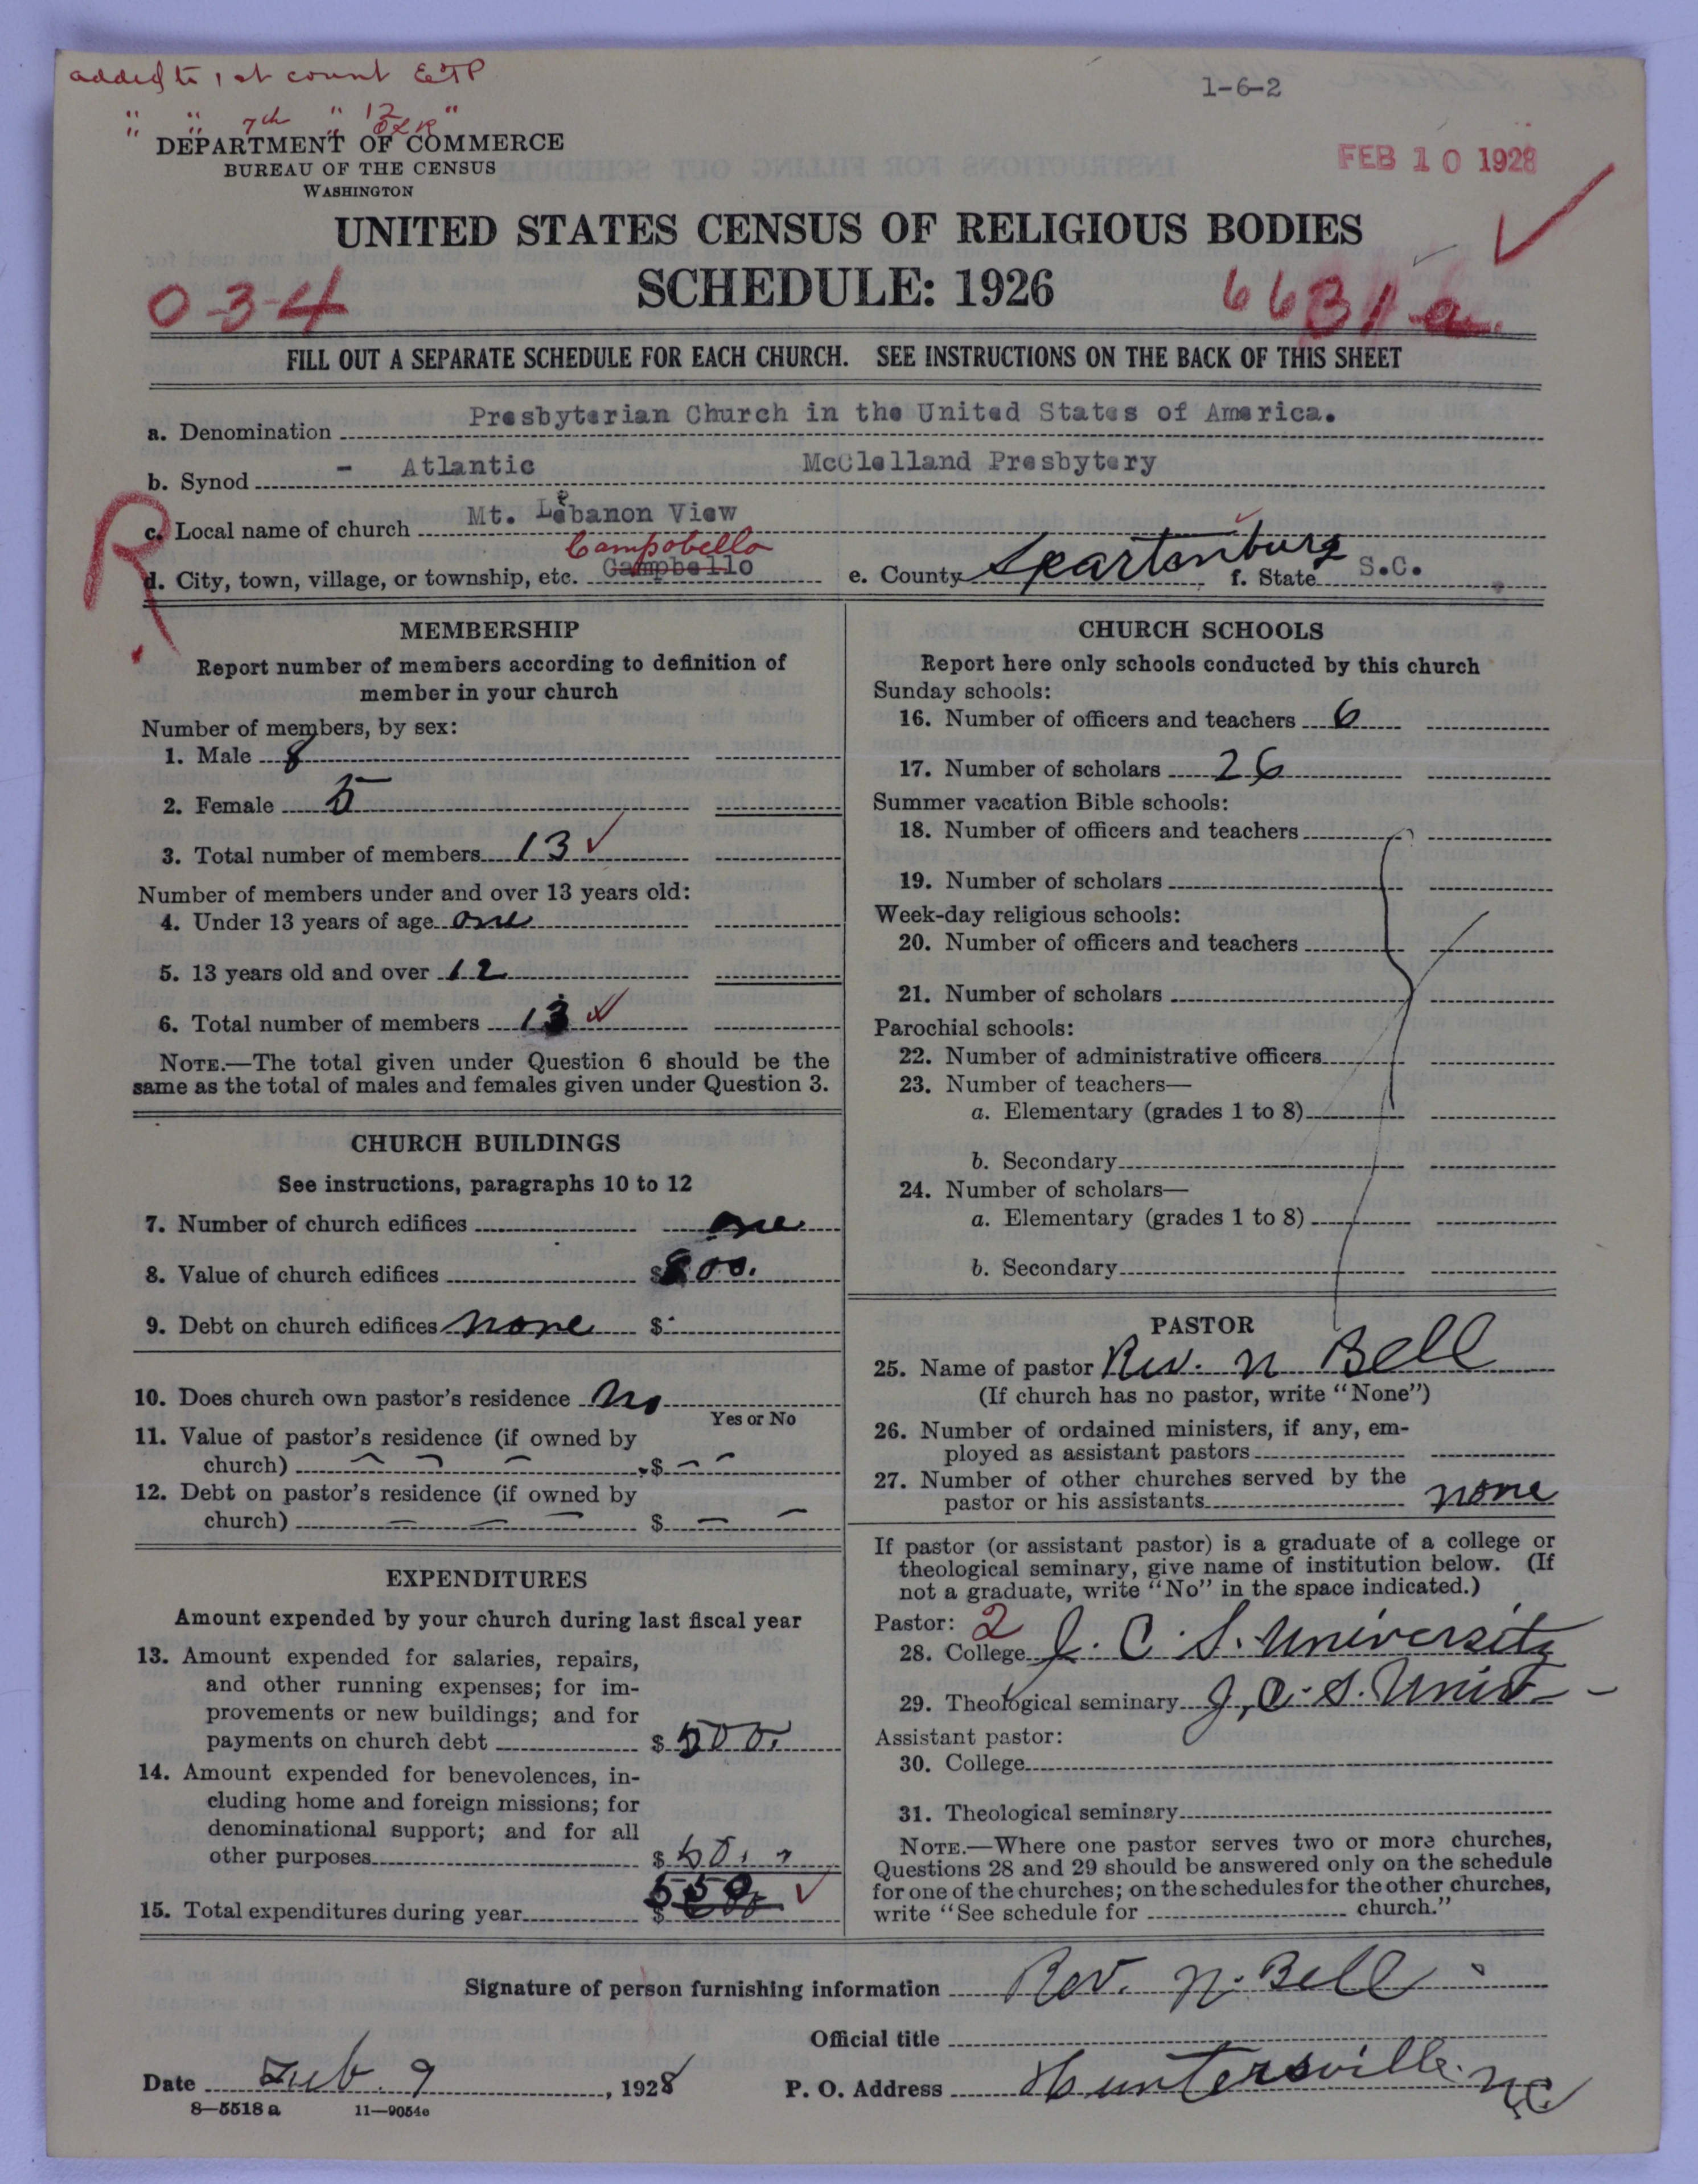 added to 1st count ETP
" " 7th " 12 "
" " " OLK
1-6-2
DEPARTMENT OF COMMERCE
BUREAU OF THE CENSUS
WASHINGTON
FEB 10 1928
UNITED STATES CENSUS OF RELIGIOUS BODIES
SCHEDULE: 1926
0-3-4
6631-a
FILL OUT A SEPARATE SCHEDULE FOR EACH CHURCH. SEE INSTRUCTIONS ON THE BACK OF THIS SHEET
a. Denomination Presbyterian Church in the United States of America.
b. Synod - Atlantic McClelland Presbytery
R
c. Local name of church Mt. Lebanon View
Campobello
d. City, town, village, or township, etc. Campbello e. County Spartenburg f. State S.C.
MEMBERSHIP
Report number of members according to definition of
member in your church
Number of members, by sex:
1. Male 8
2. Female 5
3. Total number of members 13
Number of members under and over 13 years old:
4. Under 13 years of age one
5. 13 years old and over 12
6. Total number of members 13
NOTE.—The total given under Question 6 should be the
same as the total of males and females given under Question 3.
CHURCH BUILDINGS
See instructions, paragraphs 10 to 12
7. Number of church edifices one
8. Value of church edifices $800.
9. Debt on church edifices none $
10. Does church own pastor's residence No
Yes or No
11. Value of pastor's residence (if owned by
church) $ - -
12. Debt on pastor's residence (if owned by
church) $ - -
EXPENDITURES
Amount expended by your church during last fiscal year
13. Amount expended for salaries, repairs,
and other running expenses; for im-
provements or new buildings; and for
payments on church debt $ 500.
14. Amount expended for benevolences, in-
cluding home and foreign missions; for
denominational support; and for all
other purposes $ 50.
550
15. Total expenditures during year $
CHURCH SCHOOLS
Report here only schools conducted by this church
Sunday schools:
16. Number of officers and teachers 6
17. Number of scholars 26
Summer vacation Bible schools:
18. Number of officers and teachers
19. Number of scholars
Week-day religious schools:
20. Number of officers and teachers
21. Number of scholars
Parochial schools:
22. Number of administrative officers
23. Number of teachers—
a. Elementary (grades 1 to 8)
b. Secondary
24. Number of scholars—
a. Elementary (grades 1 to 8)
b. Secondary
PASTOR
25. Name of pastor Rev. N Bell
(If church has no pastor, write "None")
26. Number of ordained ministers, if any, em-
ployed as assistant pastors
27. Number of other churches served by the
pastor or his assistants none
If pastor (or assistant pastor) is a graduate of a college or
theological seminary, give name of institution below. (If
not a graduate, write "No" in the space indicated.)
Pastor: 2
28. College J. C. S. University
29. Theological seminary J. C. S. Univ -
Assistant pastor:
30. College
31. Theological seminary
NOTE.—Where one pastor serves two or more churches,
Questions 28 and 29 should be answered only on the schedule
for one of the churches; on the schedules for the other churches,
write "See schedule for church."
Signature of person furnishing information Rev. N. Bell
Official title
Date Feb. 9, 1928 P. O. Address Huntersville N.C.
8—5518a 11—9054c